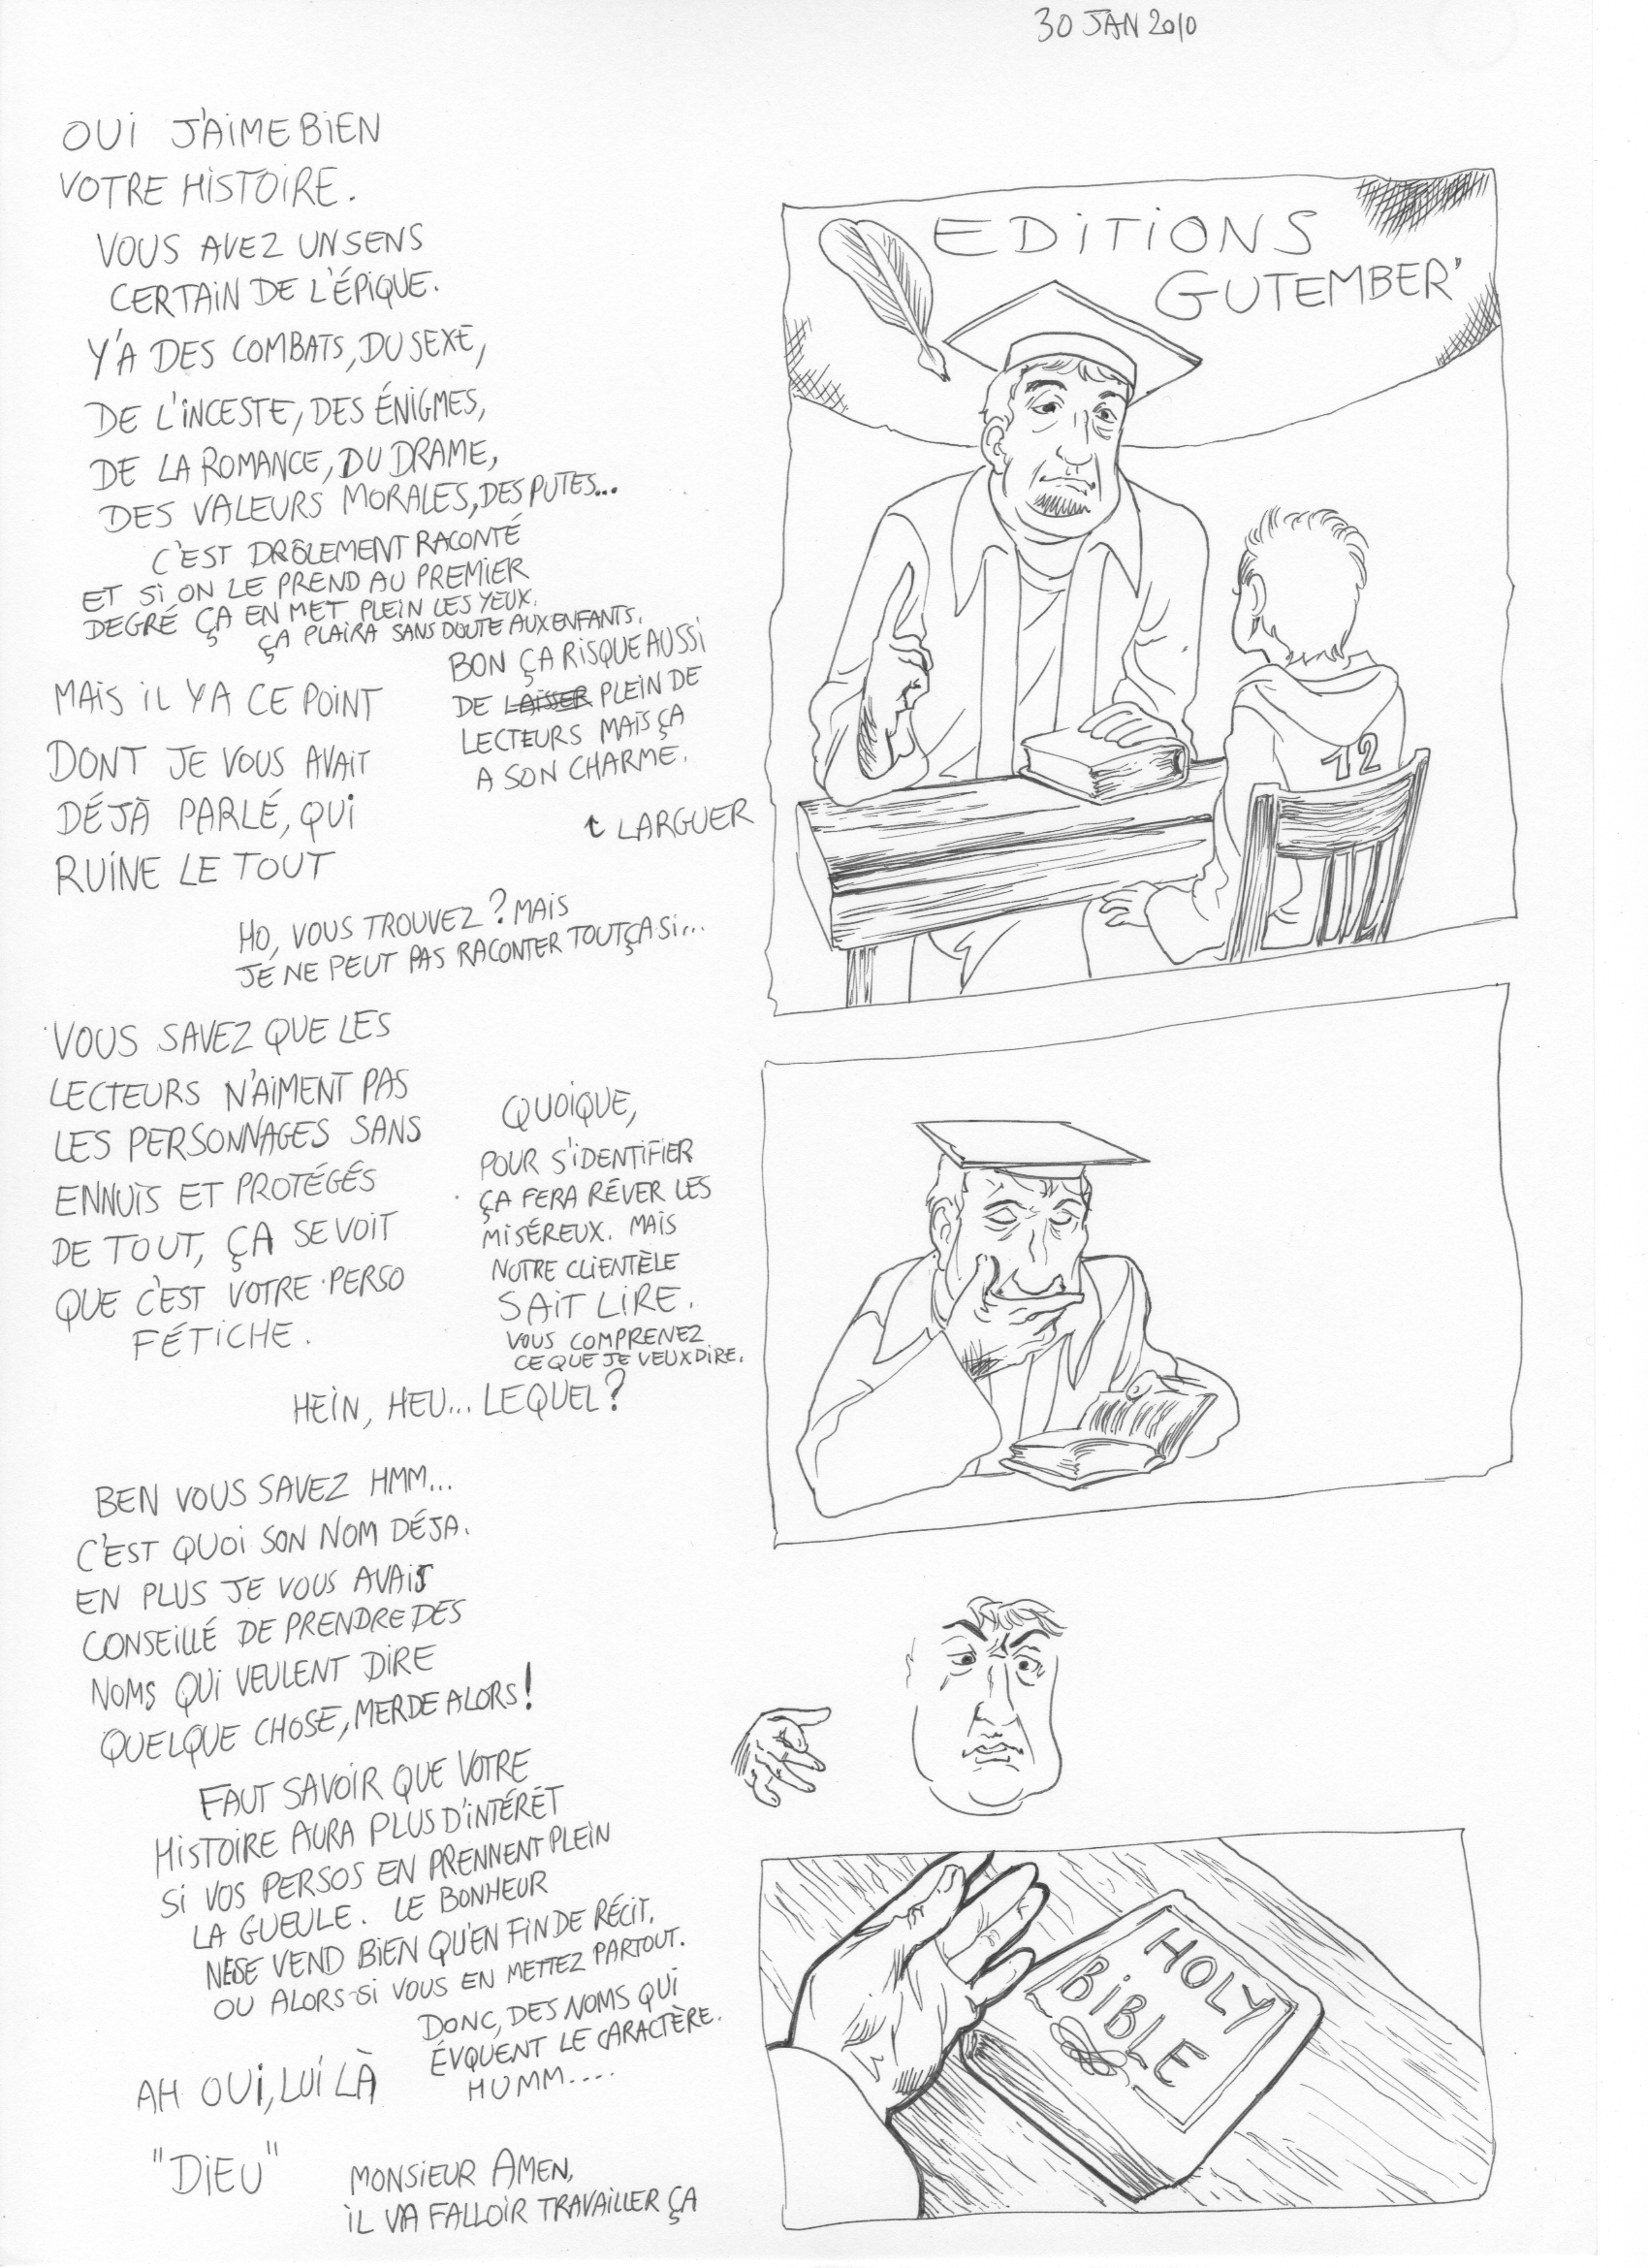 30 JAN 2010
OUI J'AIME BIEN
VOTRE HISTOIRE.
VOUS AVEZ UN SENS
CERTAIN DE L'ÉPIQUE.
Y'A DES COMBATS, DU SEXE,
DE L'INCESTE, DES ÉNIGMES,
DE LA ROMANCE, DU DRAME,
DES VALEURS MORALES, DES PUTES...
C'EST DRÔLEMENT RACONTÉ
ET SI ON LE PREND AU PREMIER
DEGRÉ ÇA EN MET PLEIN LES YEUX.
ÇA PLAIRA SANS DOUTE AUX ENFANTS.
BON ÇA RISQUE AUSSI
DE LAISSER PLEIN DE
LECTEURS MAIS ÇA
A SON CHARME.
LARGUER
MAIS IL Y A CE POINT
DONT JE VOUS AVAIT
DÉJÀ PARLÉ, QUI
RUINE LE TOUT
HO, VOUS TROUVEZ ? MAIS
JE NE PEUT PAS RACONTER TOUT ÇA SI...
VOUS SAVEZ QUE LES
LECTEURS N'AIMENT PAS
LES PERSONNAGES SANS
ENNUIS ET PROTÉGÉS
DE TOUT, ÇA SE VOIT
QUE C'EST VOTRE PERSO
FÉTICHE.
QUOIQUE,
POUR S'IDENTIFIER
ÇA FERA RÉVER LES
MISÉREUX. MAIS
NOTRE CLIENTÈLE
SAIT LIRE.
VOUS COMPRENEZ
CE QUE JE VEUX DIRE.
HEIN, HEU... LEQUEL ?
BEN VOUS SAVEZ HMM...
C'EST QUOI SON NOM DÉJA.
EN PLUS JE VOUS AVAIS
CONSEILLÉ DE PRENDRE DES
NOMS QUI VEULENT DIRE
QUELQUE CHOSE, MERDE ALORS !
FAUT SAVOIR QUE VOTRE
HISTOIRE AURA PLUS D'INTÉRÉT
SI VOS PERSOS EN PRENNENT PLEIN
LA GUEULE. LE BONHEUR
NE SE VEND BIEN QU'EN FIN DE RÉCIT.
OU ALORS SI VOUS EN METTEZ PARTOUT.
DONC, DES NOMS QUI
ÉVQUENT LE CARACTÈRE.
HUMM....
AH OUI, LUI LÀ
"DIEU"
MONSIEUR AMEN,
IL VA FALLOIR TRAVAILLER ÇA
EDITIONS
GUTEMBER'
12
HOLY
BIBLE